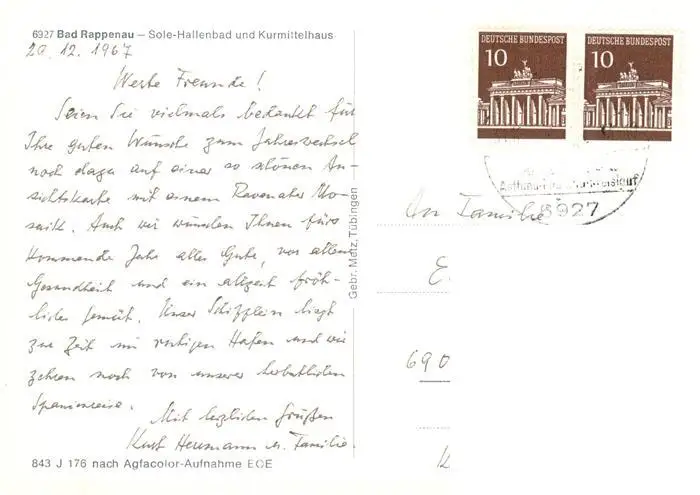 6927 Bad Rappenau – Sole-Hallenbad und Kurmittelhaus
20.12.1967
Werte Freunde!
Seien Sie vielmals bedankt für
Ihre guten Wünsche zum Jahreswechsel
noch dazu auf einer so schönen An-
sichtskarte mit einem Ravenater Mo-
saik. Auch wir wünschen Ihnen fürs
kommende Jahr alles Gute, vor allem
Gesundheit und ein allzeit fröh-
liches Gemüt. Unser Schifflein liegt
zur Zeit im ruhigen Hafen und wir
zehren noch von unserer herbstlichen
Spanienreise.
Mit herzlichen Grüßen
Kurt Herrmann u. Familie.
843 J 176 nach Agfacolor-Aufnahme ECE
Gebr. Metz, Tübingen
DEUTSCHE BUNDESPOST
10
DEUTSCHE BUNDESPOST
10
6927
An Familie
E
690
K